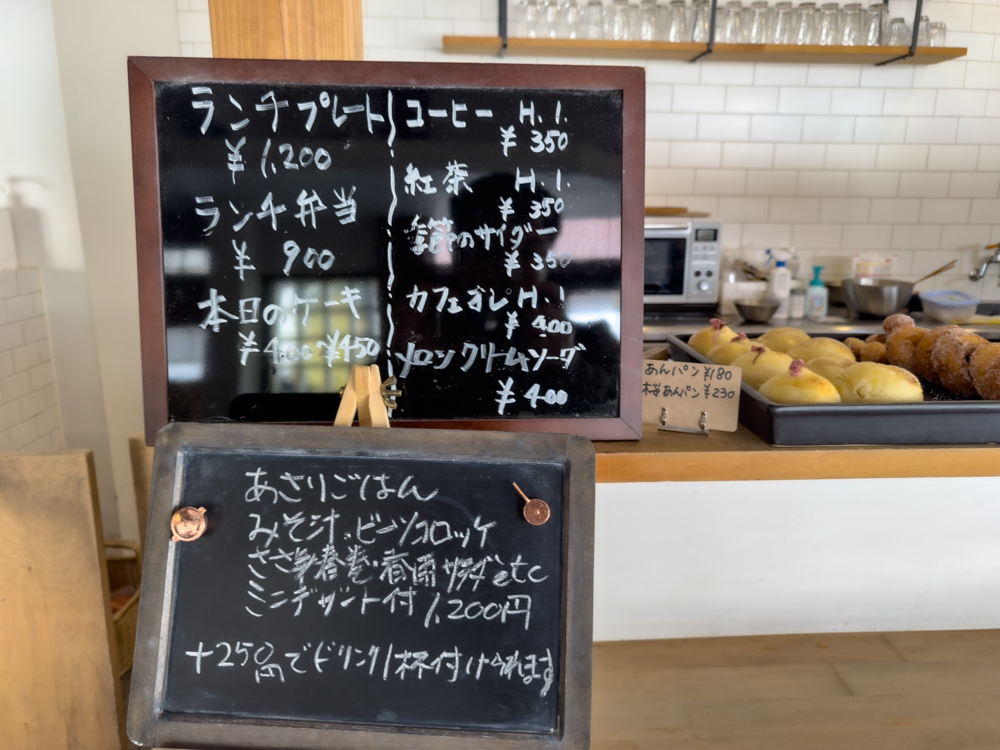 ランチプレート
¥1,200
ランチ弁当
¥900
本日のケーキ
¥400~¥450
コーヒー H. I.
¥350
紅茶 H. I.
¥350
季節のサイダー
¥350
カフェオレ H. I
¥400
メロンクリームソーダ
¥400
あんパン ¥180
桜あんパン ¥230
あさりごはん
みそ汁、ビーツコロッケ
ささ身春巻・春雨サラダetc
ミニデザート付 1,200円
+250円でドリンク1杯付けられます